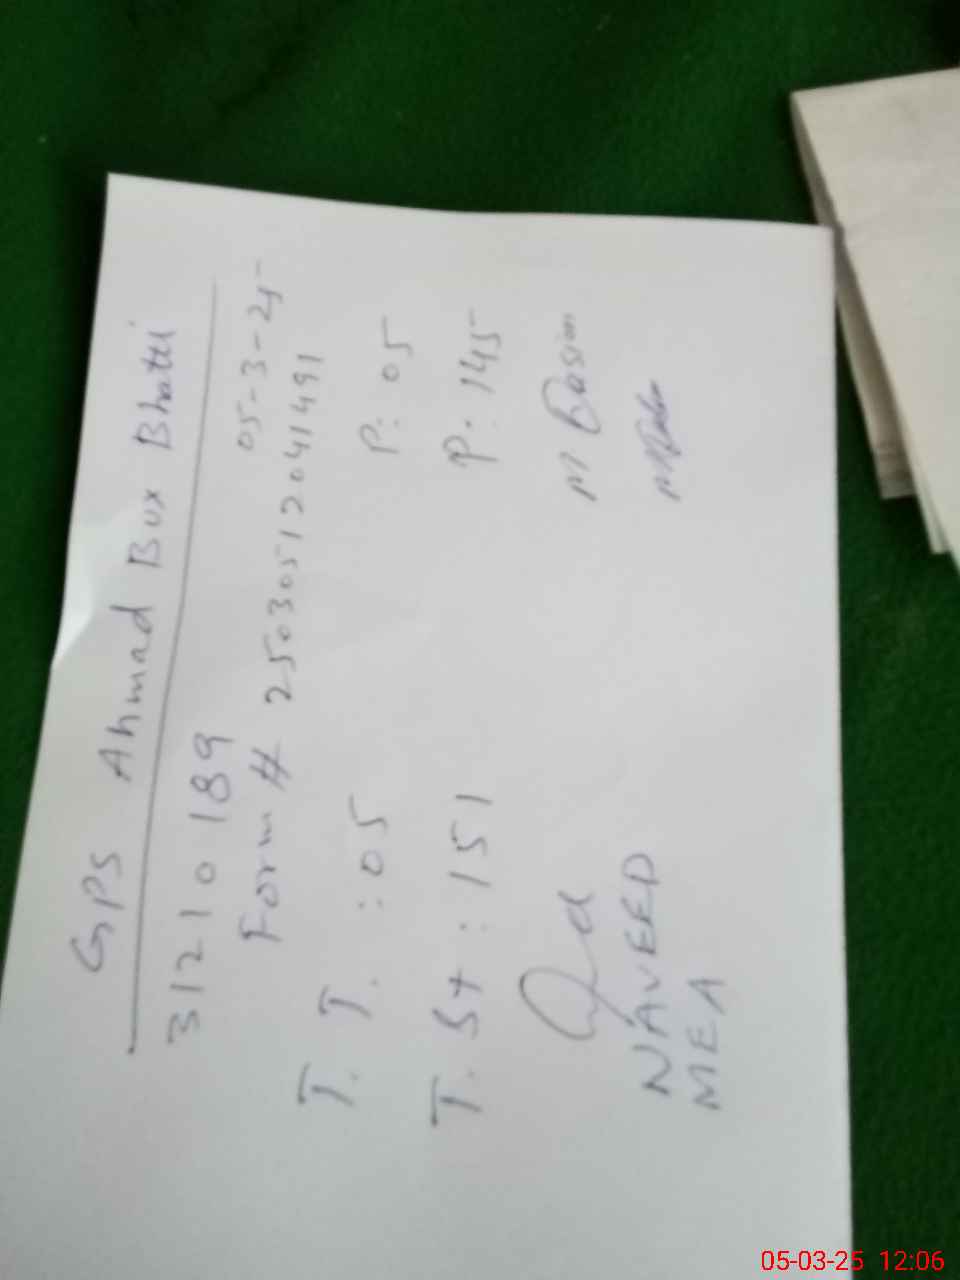 GPS Ahmad Bux Bhatti
31210189 05-3-25
Form # 25030512041491
T. T. : 05 P: 05
T. St : 151 P: 145
M Qasim
NAVEED
MEA
05-03-25 12:06